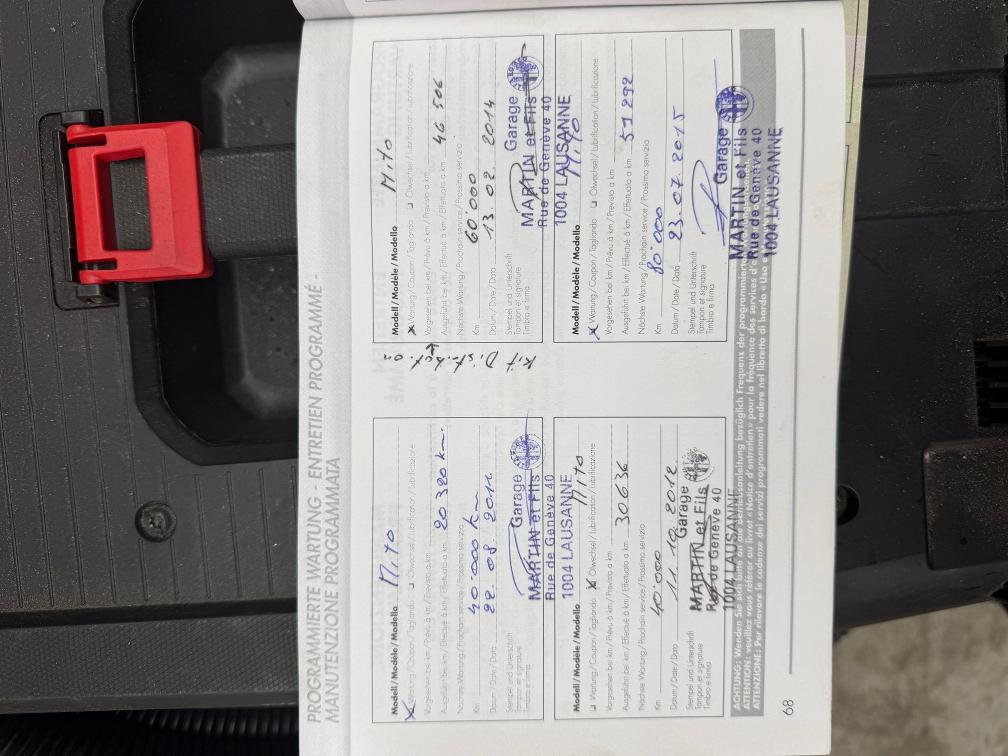 PROGRAMMIERTE WARTUNG - ENTRETIEN PROGRAMMÉ -
MANUTENZIONE PROGRAMMATA
Modell / Modèle / Modello Mito
X Wartung / Coupon / Tagliando ❑ Ölwechsel / Lubrification / Lubrificazione
Vorgesehen bei km / Prévu à km / Previsto a km
Ausgeführt bei km / Effectué à km / Effettuato a km 20 320 km.
Nächste Wartung / Prochain service / Prossimo servizio
Km 40'000 km
Datum / Date / Data 22. 08. 2011
Stempel und Unterschrift
Tampon et signature
Timbro e firma
Garage
MARTIN et Fils
Rue de Genève 40
1004 LAUSANNE
Modell / Modèle / Modello Mito
❑ Wartung / Coupon / Tagliando X Ölwechsel / Lubrification / Lubrificazione
Vorgesehen bei km / Prévu à km / Previsto a km
Ausgeführt bei km / Effectué à km / Effettuato a km 30 636
Nächste Wartung / Prochain service / Prossimo servizio
Km 40'000
Datum / Date / Data 11. 10. 2012
Stempel und Unterschrift
Tampon et signature
Timbro e firma
Garage
MARTIN et Fils
Rue de Genève 40
1004 LAUSANNE
Kit Distribution
Modell / Modèle / Modello Mito
X Wartung / Coupon / Tagliando ❑ Ölwechsel / Lubrification / Lubrificazione
Vorgesehen bei km / Prévu à km / Previsto a km
Ausgeführt bei km / Effectué à km / Effettuato a km 46 506
Nächste Wartung / Prochain service / Prossimo servizio
Km 60'000
Datum / Date / Data 13. 02. 2014
Stempel und Unterschrift
Tampon et signature
Timbro e firma
Garage
MARTIN et Fils
Rue de Genève 40
1004 LAUSANNE
Modell / Modèle / Modello Mito
X Wartung / Coupon / Tagliando ❑ Ölwechsel / Lubrification / Lubrificazione
Vorgesehen bei km / Prévu à km / Previsto a km
Ausgeführt bei km / Effectué à km / Effettuato a km 59 292
Nächste Wartung / Prochain service / Prossimo servizio
Km 80'000
Datum / Date / Data 23. 07. 2015
Stempel und Unterschrift
Tampon et signature
Timbro e firma
Garage
MARTIN et Fils
Rue de Genève 40
1004 LAUSANNE
ACHTUNG: Wenden Sie sich bitte an die Betriebsanleitung bezüglich Frequenz der programmierten
ATTENTION: veuillez vous référer au livret «Notice d'entretien» pour la fréquence des services d'
ATTENZIONE: Per rilevare le cadenze dei servizi programmati vedere nel libretto di bordo «Uso e
68